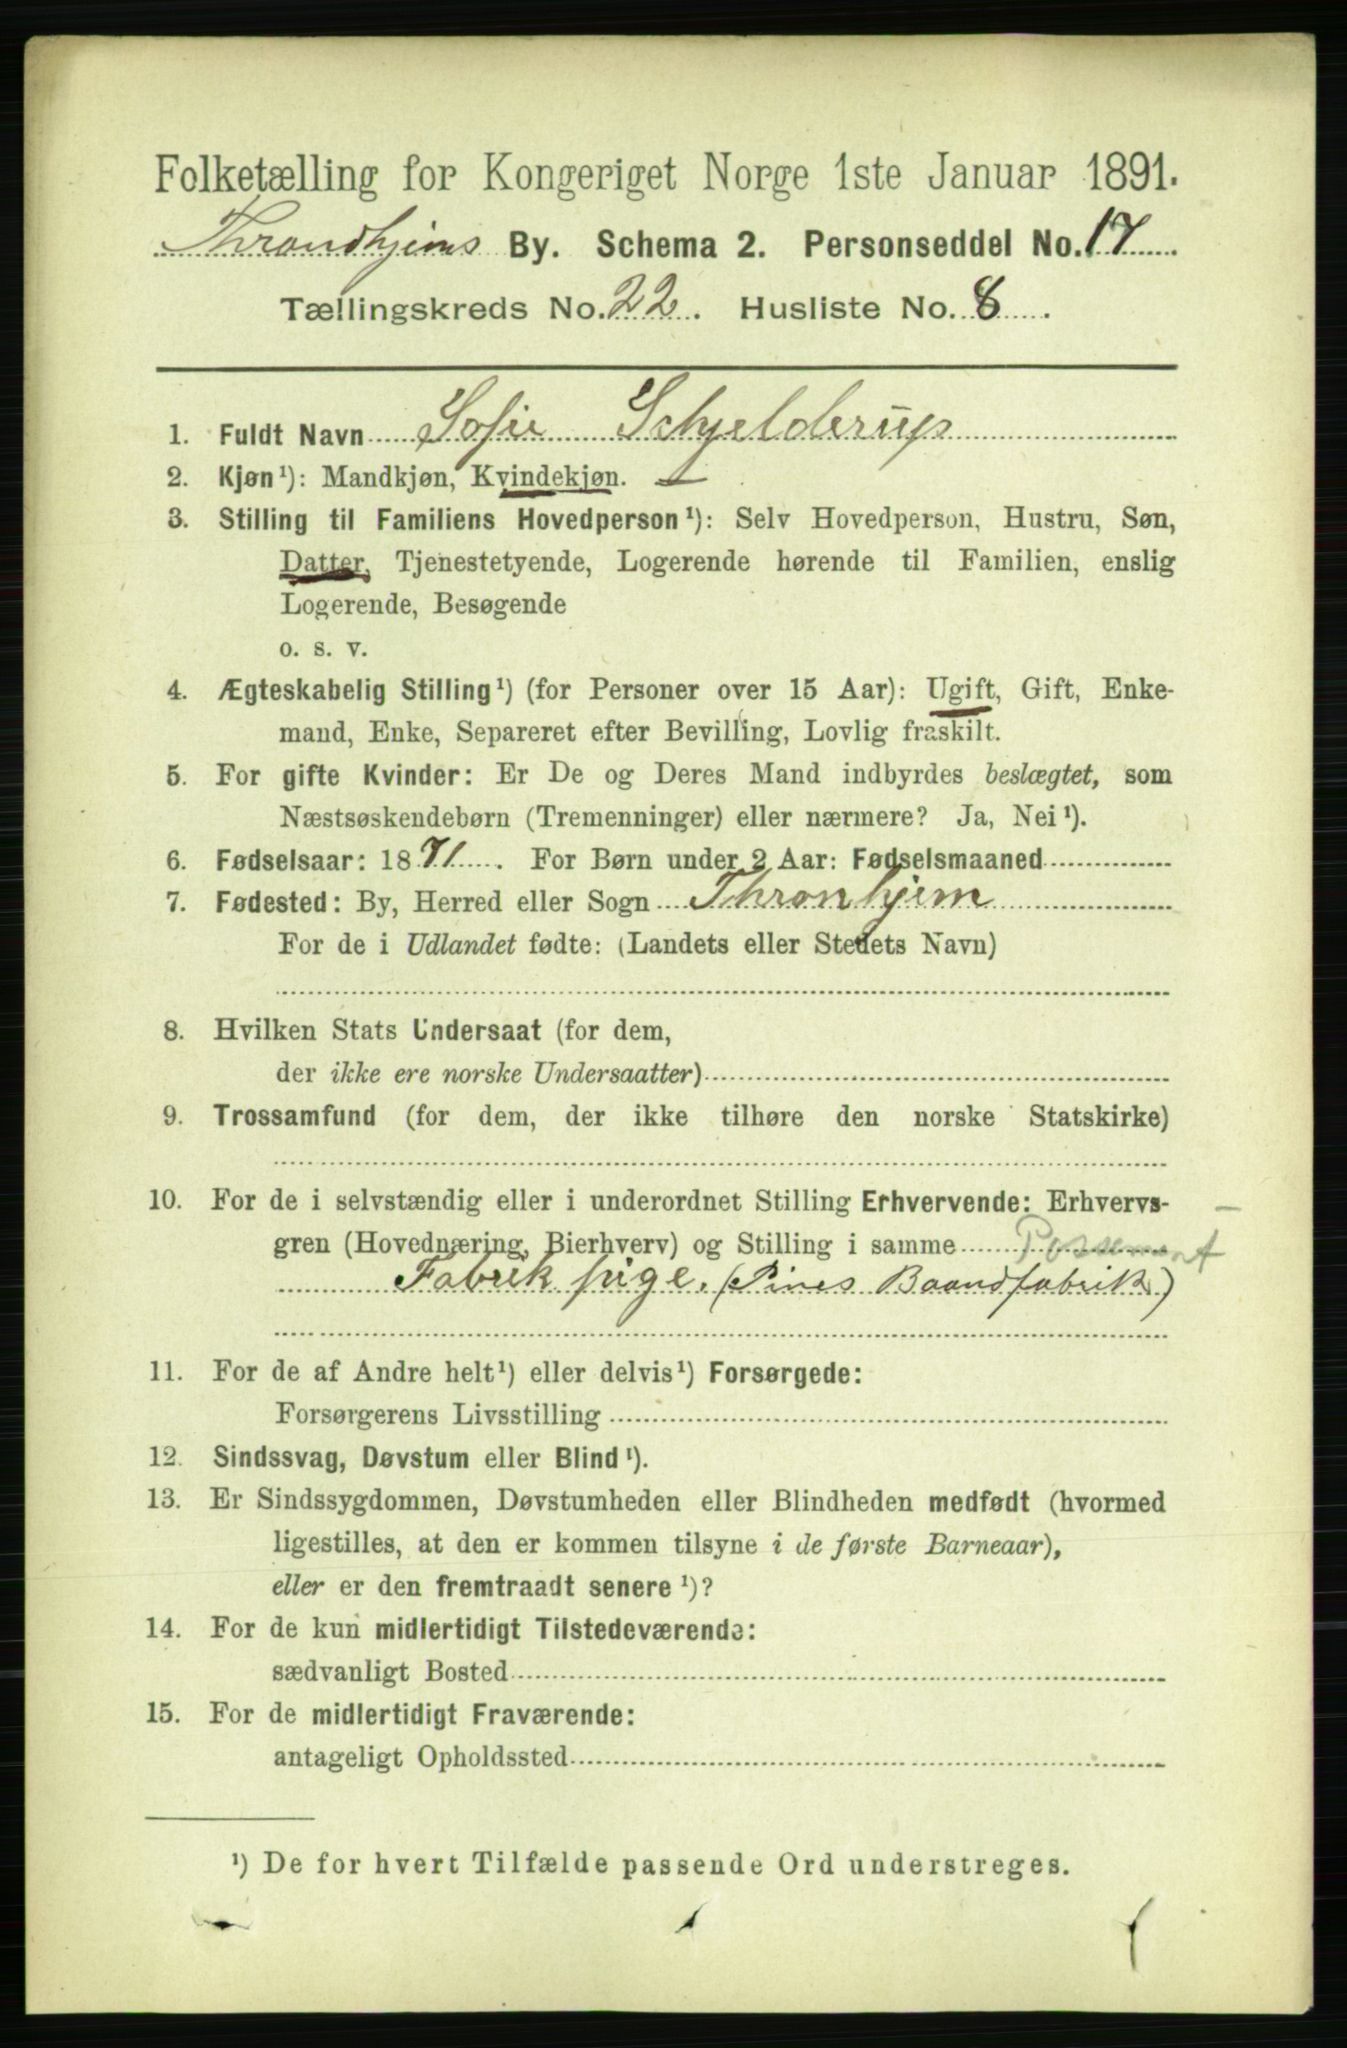 Folketælling for Kongeriget Norge 1ste Januar 1891.
Throndhjems By. Schema 2. Personseddel No. 17
Tællingskreds No. 22. Husliste No. 8.
1. Fuldt Navn Sofie Schjelderup
2. Kjøn¹): Mandkjøn, Kvindekjøn.
3. Stilling til Familiens Hovedperson¹): Selv Hovedperson, Hustru, Søn,
Datter, Tjenestetyende, Logerende hørende til Familien, enslig
Logerende, Besøgende
o. s. v.
4. Ægteskabelig Stilling¹) (for Personer over 15 Aar): Ugift, Gift, Enke-
mand, Enke, Separeret efter Bevilling, Lovlig fraskilt.
5. For gifte Kvinder: Er De og Deres Mand indbyrdes beslægtet, som
Næstsøskendebørn (Tremenninger) eller nærmere? Ja, Nei¹).
6. Fødselsaar: 1871. For Børn under 2 Aar: Fødselsmaaned
7. Fødested: By, Herred eller Sogn Thronhjem
For de i Udlandet fødte: (Landets eller Stedets Navn)
8. Hvilken Stats Undersaat (for dem,
der ikke ere norske Undersaatter)
9. Trossamfund (for dem, der ikke tilhøre den norske Statskirke)
10. For de i selvstændig eller i underordnet Stilling Erhvervende: Erhvervs-
gren (Hovednæring, Bierhverv) og Stilling i samme Possement
Fabrik pige. (Pines Baandfabrik)
11. For de af Andre helt¹) eller delvis¹) Forsørgede:
Forsørgerens Livsstilling
12. Sindssvag, Døvstum eller Blind¹).
13. Er Sindssygdommen, Døvstumheden eller Blindheden medfødt (hvormed
ligestilles, at den er kommen tilsyne i de første Barneaar),
eller er den fremtraadt senere¹)?
14. For de kun midlertidigt Tilstedeværende:
sædvanligt Bosted
15. For de midlertidigt Fraværende:
antageligt Opholdssted
¹) De for hvert Tilfælde passende Ord understreges.